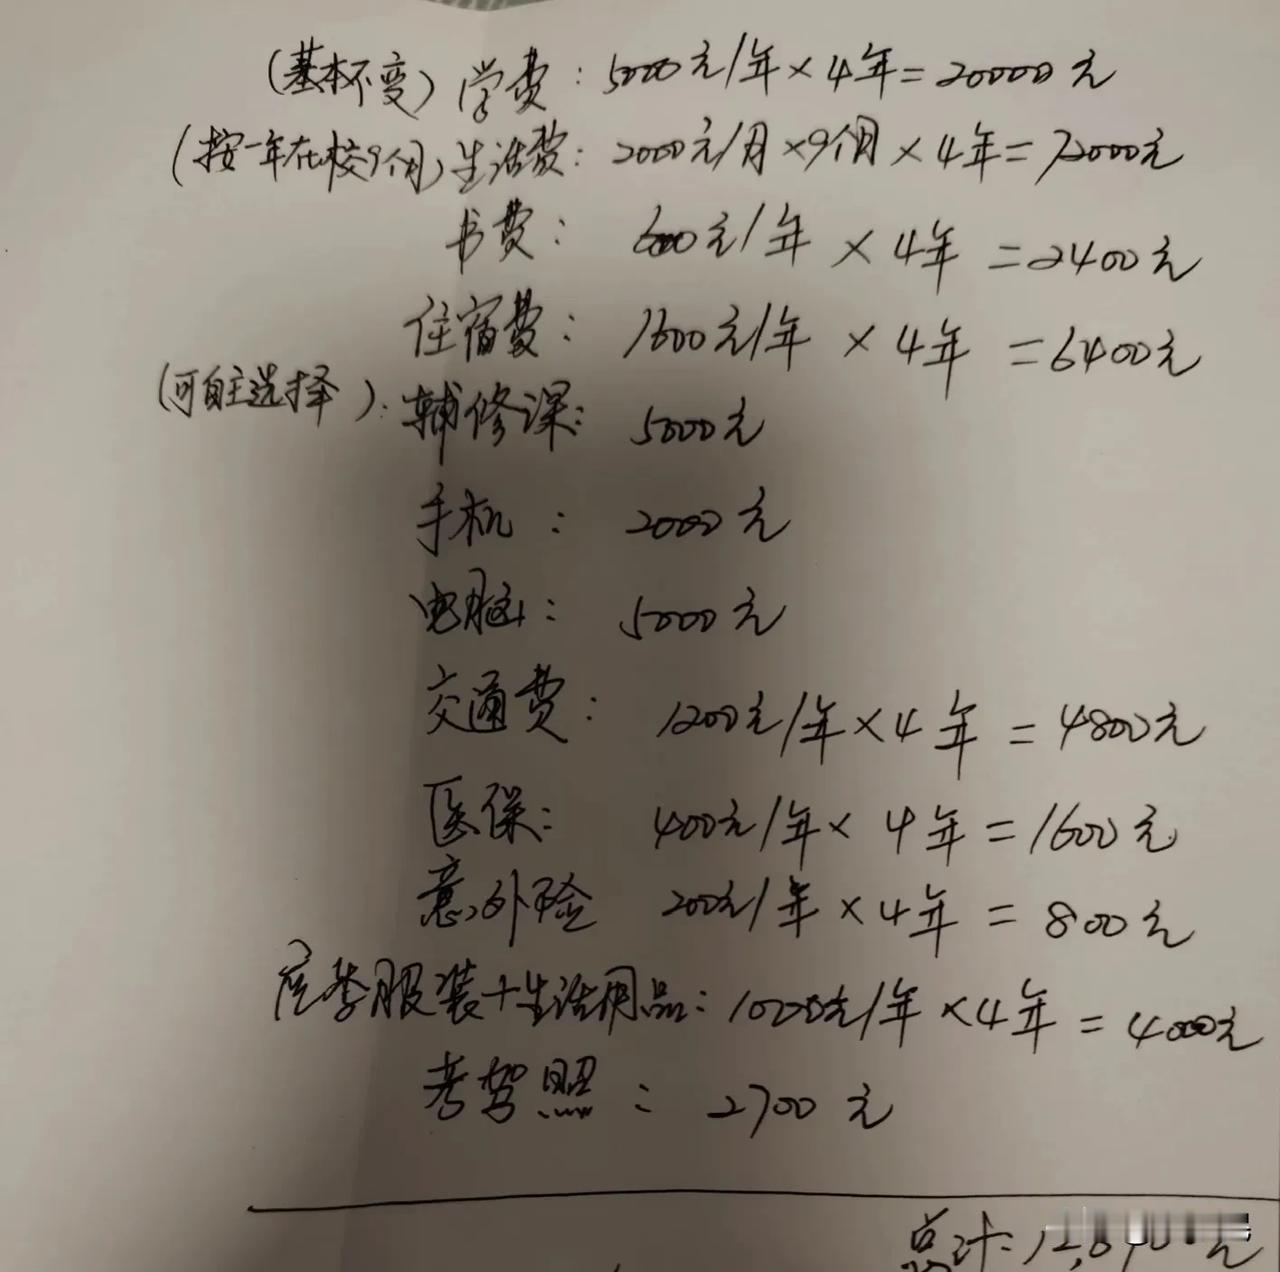 (基本不变) 学费: 5000元/年×4年=20000元
(按一年在校9个月) 生活费: 2000元/月×9个月×4年=72000元
书费: 600元/年 × 4年 =2400元
住宿费: 1600元/年 × 4年 =6400元
(可自主选择): 辅修课: 5000元
手机: 2000元
电脑: 5000元
交通费: 1200元/年×4年=4800元
医保: 400元/年×4年=1600元
意外险 200元/年×4年=800元
应季服装+生活用品: 1000元/年×4年=4000元
考驾照: 2700元
总计: 元